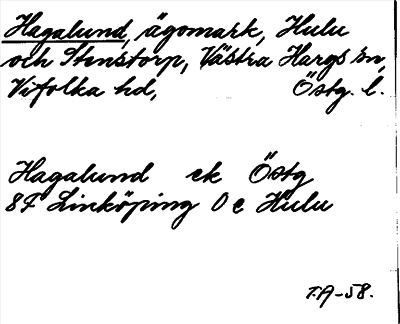 Hagalund, ägomark, Hulu
och Stenstorp, Västra Hargs sn,
Vifolka hd, Östg. l.
Hagalund ek Östg
8F Linköping 0 e Hulu
T.A-58.